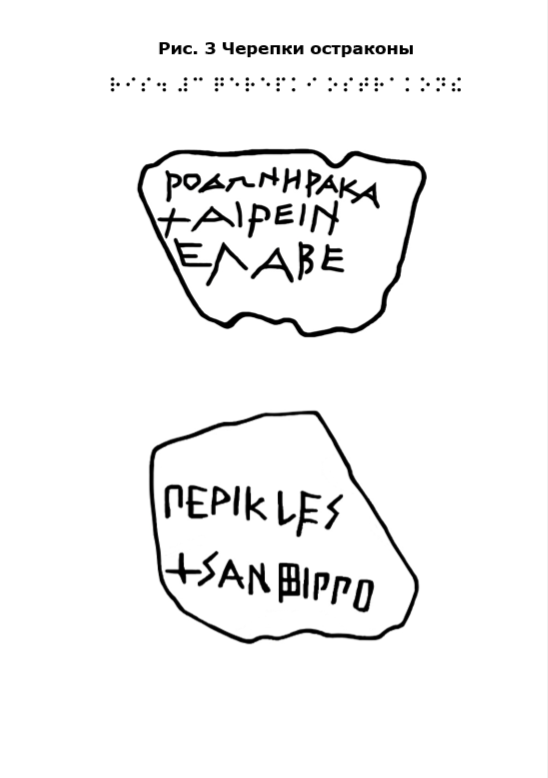 Рис. 3 Черепки остраконы
⠗⠊⠎⠲ ⠼⠉ ⠟⠑⠗⠑⠏⠅⠊ ⠕⠎⠞⠗⠁⠅⠕⠝⠮
ΡΟΔΠΝΗΡΑΚΑ
+ΑΙΡΕΙΝ
ΕΛΑΒΕ
ΠΕΡΙΚLΕS
+SΑΝ⊞ΙΓΓΟ